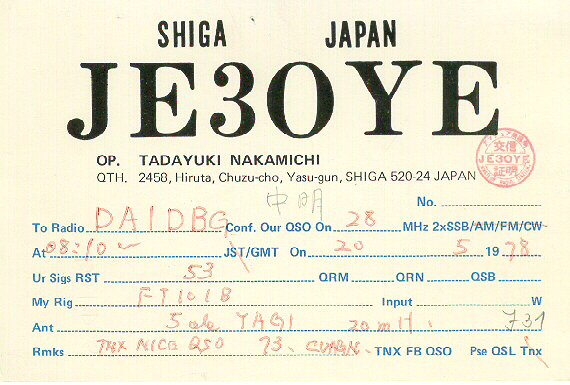 SHIGA JAPAN
JE3OYE
OP. TADAYUKI NAKAMICHI
QTH. 2458, Hiruta, Chuzu-cho, Yasu-gun, SHIGA 520-24 JAPAN
交信
JE3OYE
証明
No.
To Radio DA1DBG Conf. Our QSO On 28 MHz 2xSSB/AM/FM/CW
At 08:10 JST/GMT On 20 5 1978
Ur Sigs RST 53 QRM QRN QSB
My Rig FT101B Input W
Ant 5 ele YAGI 20mH. 731
Rmks TNX NICE QSO 73. TNX FB QSO Pse QSL Tnx